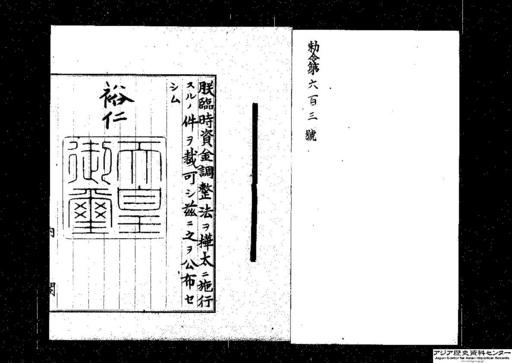 勅令第六百三號
朕臨時資金調整法ヲ樺太ニ施行
スルノ件ヲ裁可シ茲ニ之ヲ公布セ
シム
裕仁
天皇
御璽
内閣
アジア歴史資料センター
Japan Center for Asian Historical Records